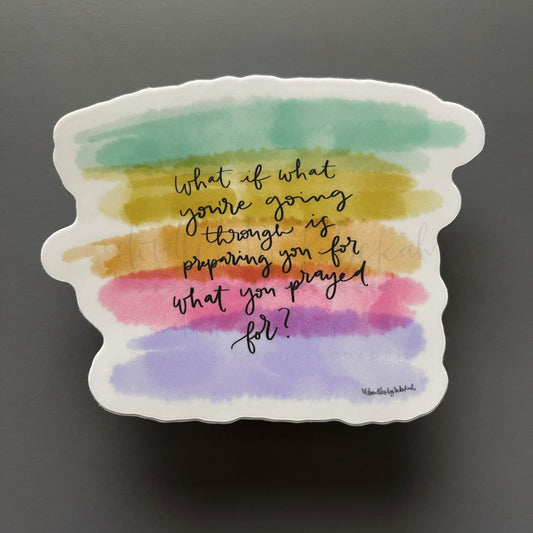 What if what
you're going
through is
preparing you for
what you prayed
for?
DESIGNS GOODS APPAREL